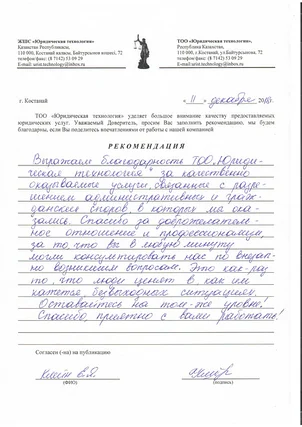 ЖШС «Юридическая технология»
Казахстан Республикасы,
110 000, Костанай каласы, Байтурсынов кошесі, 72
тел/факс: 8 (7142) 53 09 29
E-mail: urist.technology@inbox.ru
ТОО «Юридическая технология»
Республика Казахстан,
110 000, г. Костанай, ул. Байтурсынова, 72
тел/факс: 8 (7142) 53 09 29
E-mail: urist.technology@inbox.ru
г. Костанай
« 11 » декабря 20
ТОО «Юридическая технология» уделяет большое внимание качеству предоставляемых
юридических услуг. Уважаемый Доверитель, просим Вас заполнить рекомендацию, мы будем
благодарны, если Вы поделитесь впечатлениями от работы с нашей компанией
РЕКОМЕНДАЦИЯ
Выражаем благодарность ТОО „Юриди-
ческая технология" за качественно
оказываемые услуги, связанные с разре-
шением административных и граж-
данских споров, в которых мы ока-
зались. Спасибо за доброжелатель-
ное отношение и профессионализм,
за то что вы в любую минуту
могли консультировать нас по внезап-
но возникшим вопросам. Это как-раз
то, что люди ценят в, как им
кажется, безвыходных ситуациях.
Оставайтесь на том-же уровне!
Спасибо, приятно с вами работать!
Согласен (-на) на публикацию
(ФИО)
(подпись)